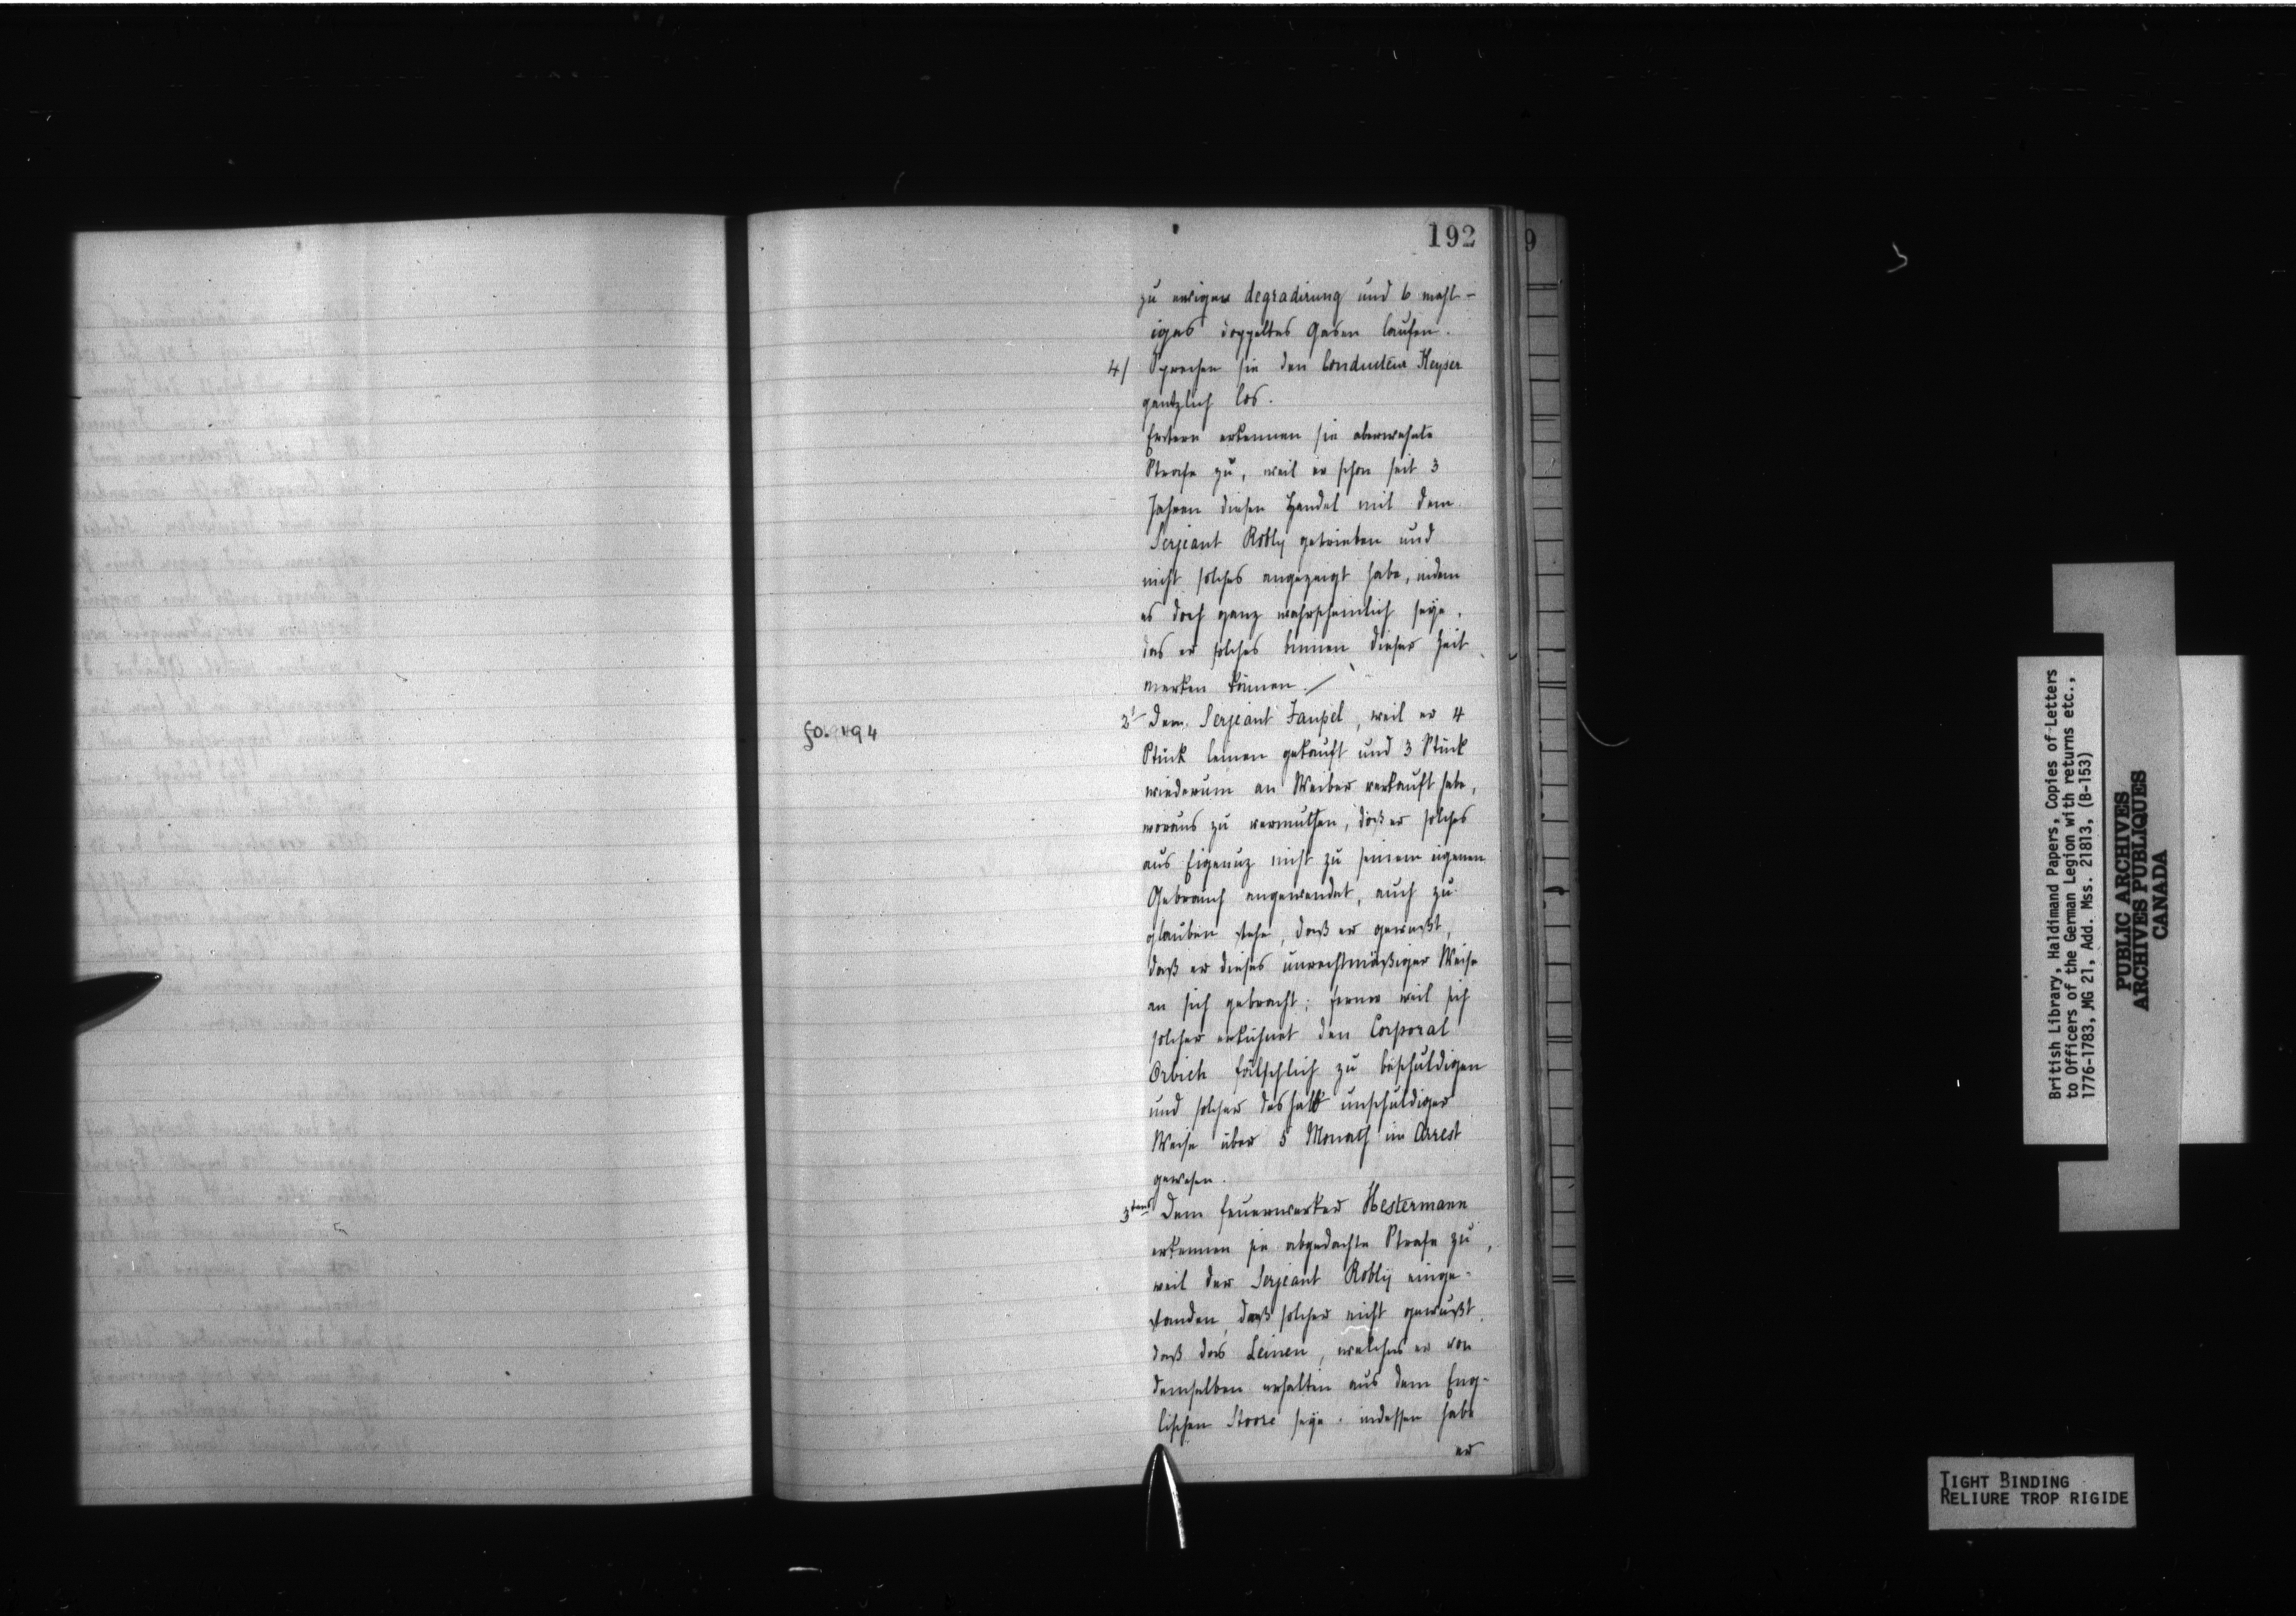 192
9
zu ewiger degradirung und 6 mahl-
iges doppeltes Gasen laufen.
4/ Sprechen sie den Conducteur Keyser
gentzlich los.
Erstern erkennen sie oberwehnte
Strafe zu, weil er schon seit 3
Jahren diesen Handel mit dem
Serjeant Robly getrieben und
nicht solches angezeigt habe, indem
es doch ganz wahrscheinlich seye,
das er solches binnen dieser Zeit
merken können.
fo. 194
2' Dem Serjeant Faupel, weil er 4
Stück leinen gekauft und 3 Stück
wiederum an Weiber verkauft habe,
woraus zu vermuthen, daß er solches
aus Eigenuz nicht zu seinem eigenen
Gebrauch angewendet, auch zu
glauben stehe, daß er gewußt,
daß er dieses unrechtmäßiger Weise
an sich gebracht; ferner weil sich
solcher erkühnet den Corporal
Orbich fälschlich zu beschuldigen
und solcher deshalb unschuldiger
Weise über 5 Monath im Arrest
gewesen.
3tens Dem Feuerwerker Hestermann
erkennen sie abgedachte Strafe zu,
weil der Serjeant Robly einge-
standen, daß solcher nicht gewußt,
daß das Leinen, welches er von
demselben erhalten aus dem Eng-
lischen Stoore seye. indessen habe
er
British Library, Haldimand Papers, Copies of Letters
to Officers of the German Legion with returns etc.,
1776-1783, MG 21, Add. Mss. 21813, (B-153)
PUBLIC ARCHIVES
ARCHIVES PUBLIQUES
CANADA
TIGHT BINDING
RELIURE TROP RIGIDE